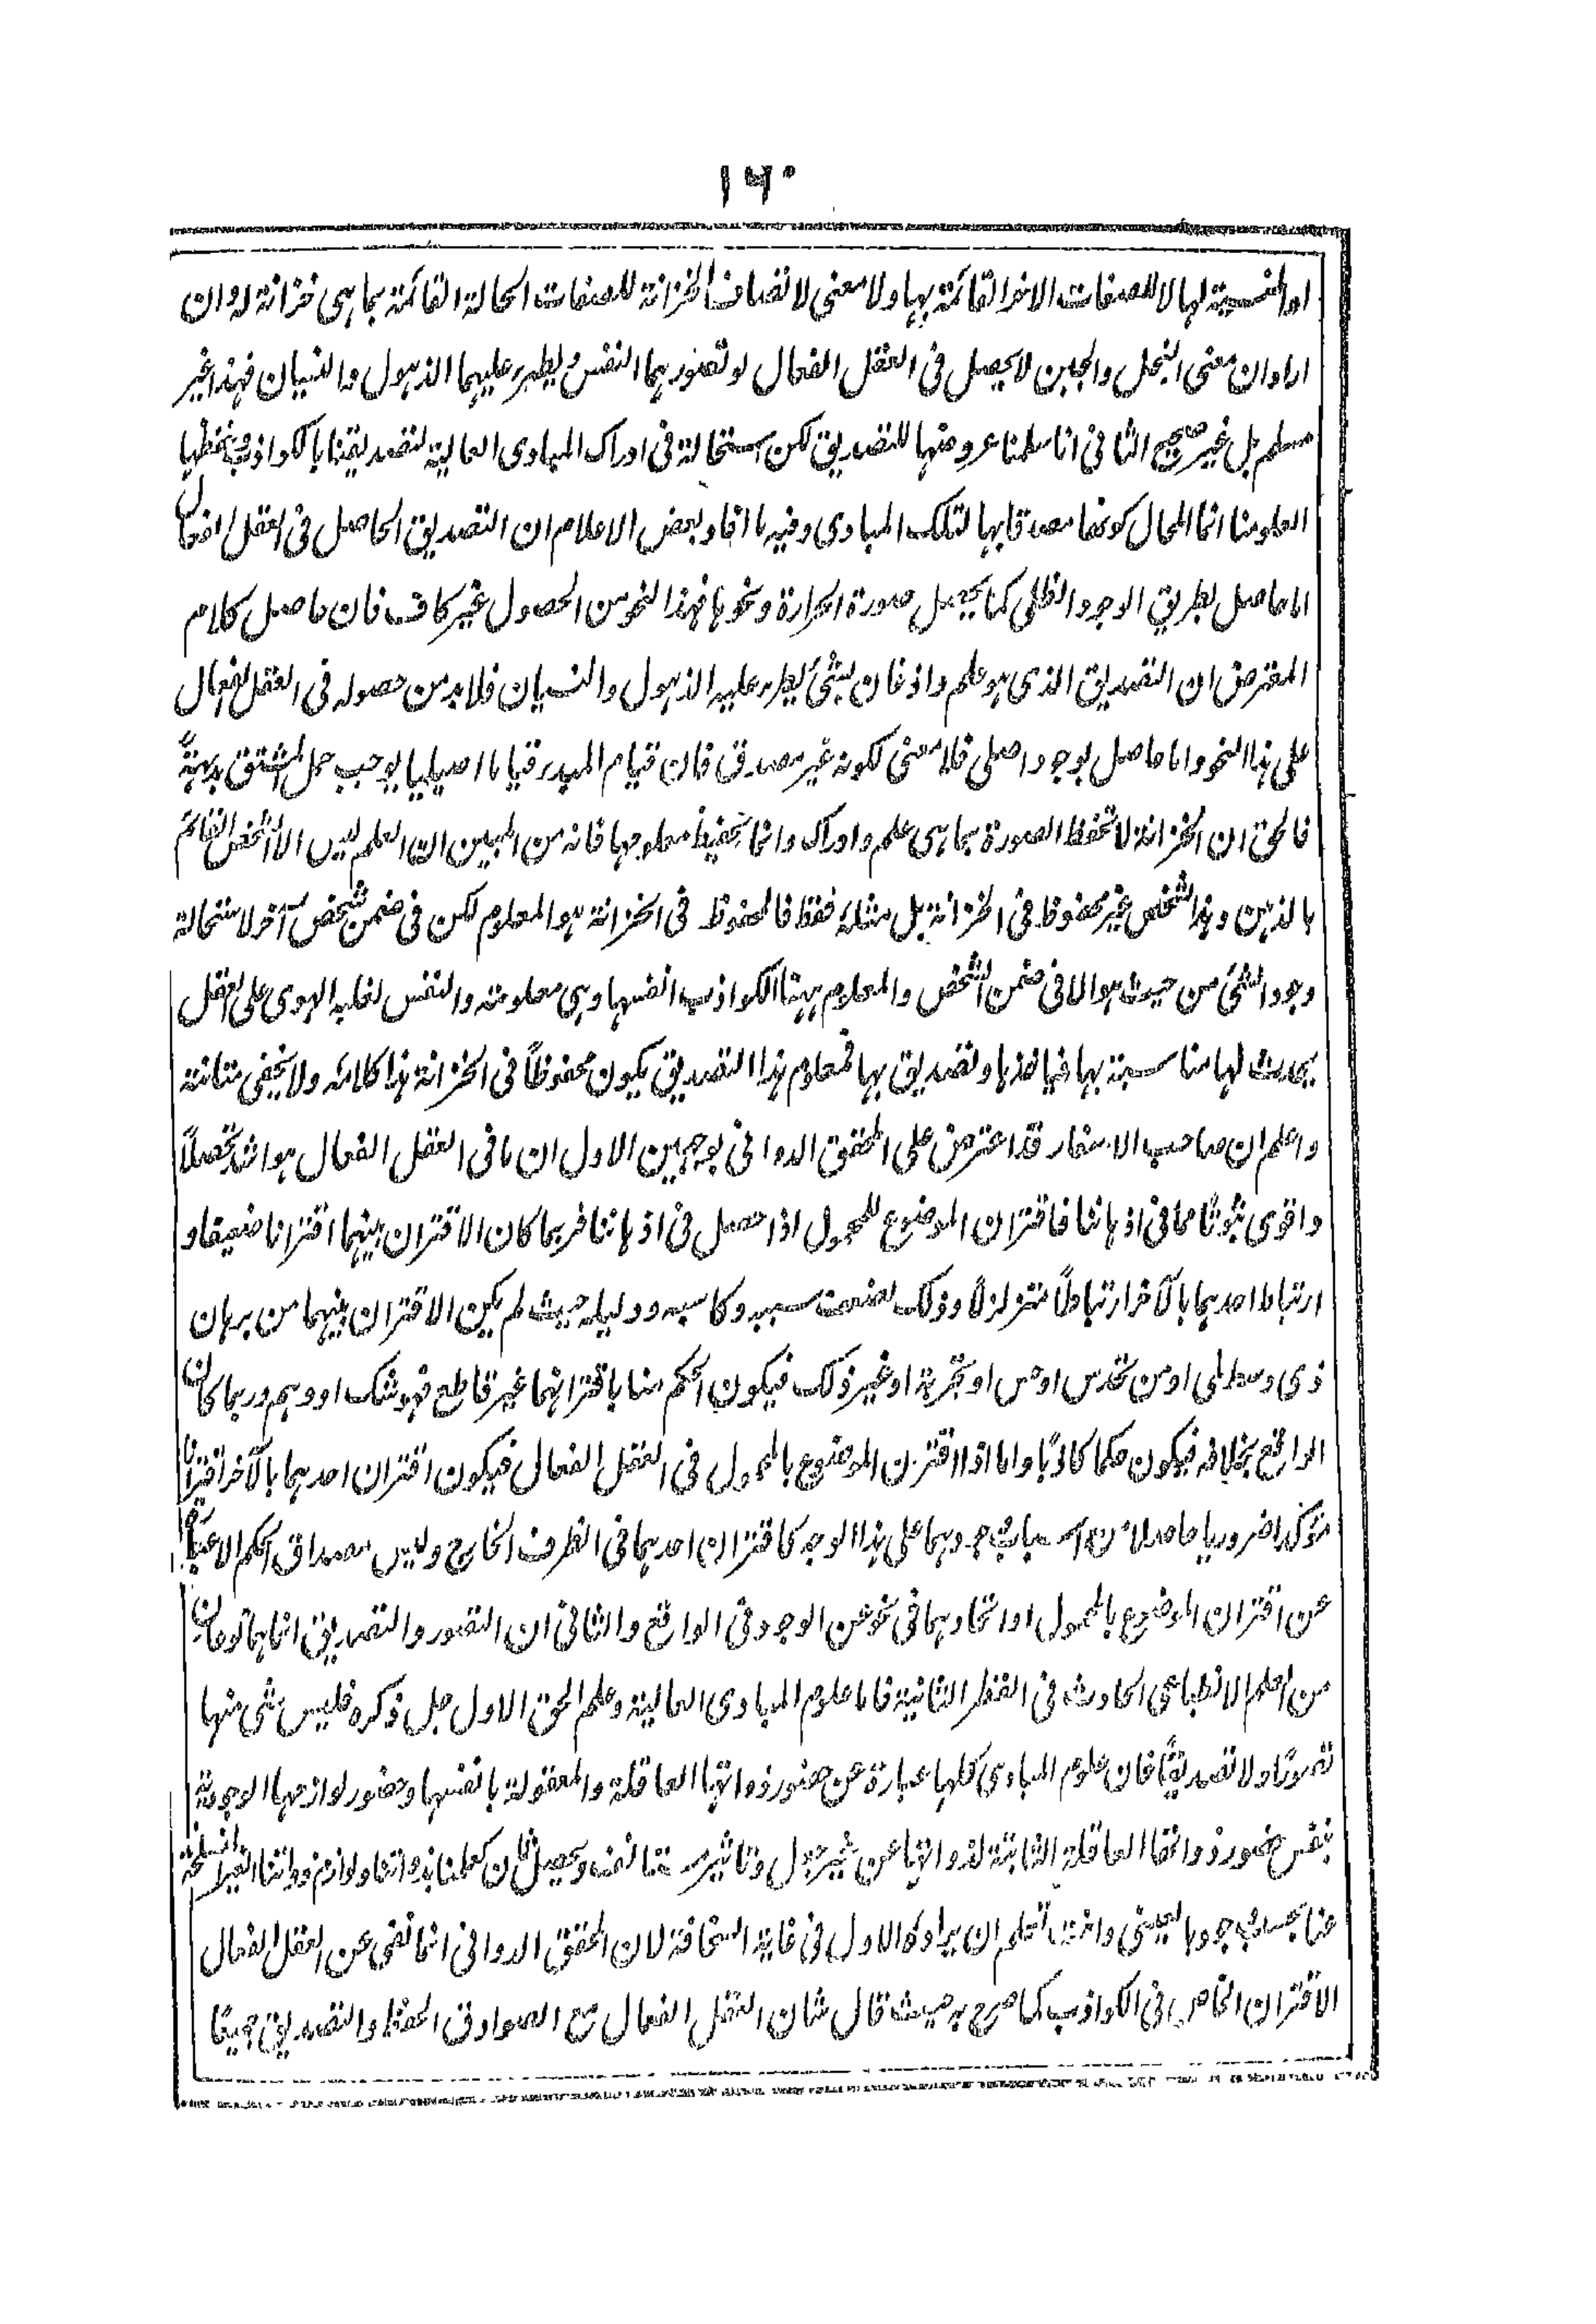 ۱۶۰
او النسبة لها لا للصفات الاخر القائمة بها ولا معنى لاتصاف الخزانة للصفات الحالة القائمة بما هي خزانة له وان
اراد ان معنى البخل والجبن لا يحصل في العقل الفعال لو تصور بهما النفس و يطرء عليهما الذهول والنسيان فهذا غير
مسلم بل غير صحيح الثاني انا سلمنا عروضها للتصديق لكن استحالة في ادراك المبادى العالية لتصديقنا بالكواذب وحفظها
لعلومنا انما المحال كونها مصدقا بها لتلك المبادى وفيه ما افاد بعض الاعلام ان التصديق الحاصل في العقل الفعال
اما حاصل بطريق الوجود الظلى كما يحصل صورة الحرارة ونحوها فهذا النحو من الحصول غير كاف فان حاصل كلام
المعترض ان التصديق الذى هو علم واذعان بشئ يطرء عليه الذهول والنسيان فلا بد من حصوله في العقل الفعال
على هذا النحو واما حاصل بوجود اصلى فلا معنى لكونه غير مصدق فان قيام المبدء قياما اصيليا يوجب حمل المشتق بديهة
فالحق ان الخزانة لا تحفظ الصورة بما هى علم وادراك وانما يحفظ معلومها فانه من المبين ان العلم ليس الا الشخص القائم
بالذهن وهذا الشخص غير محفوظ في الخزانة بل مثاله فقط فالمحفوظ في الخزانة هو المعلوم لكن في ضمن شخص آخر لاستحالة
وجود الشئ من حيث هو الا في ضمن الشخص والمعلوم ههنا الكواذب انفسها وهى معلومته والنفس لغلبه الهوى على العقل
يحدث لها مناسبة بها فياخذها وتصديق بها فمعلوم هذا التصديق يكون محفوظاً في الخزانة هذا كلامه ولا يخفى متانته
واعلم ان صاحب الاسفار قد اعترض على المحقق الدوانى بوجهين الاول ان ما في العقل الفعال هو اشد تحصلاً
واقوى ثبوتًا مما في اذهاننا فاقتران الموضوع للمحمول اذا حصل في اذهاننا فربما كان الاقتران بينهما اقترانا ضعيفا و
ارتباط احدهما بالآخر ارتباطاً متزلزلاً وذلك لضعف سببه وكاسبه ودليله حيث لم يكن الاقتران بينهما من برهان
ذى وسط لمى او من تحدس او حس او تجربة او غير ذلك فيكون الحكم منا باقترانهما غير قاطع فهو شك او وهم وربما كان
الواقع بخلافه فيكون حكما كاذبًا واما اذا اقترن الموضوع بالمحمول في العقل الفعال فيكون اقتران احدهما بالآخر اقترانا
مؤكدا ضروريا حاصلا من اسباب وجودهما على هذا الوجه كاقتران احدهما في الظرف الخارج وليس مصداق الحكم الا عبارة
عن اقتران الموضوع بالمحمول او اتحادهما في نحو عن الوجود في الواقع والثاني ان التصور والتصديق انما هما نوعان
من العلم الانطباعى الحادث في الفطر الثانية فاما علوم المبادى العالية وعلم الحق الاول جل ذكره فليس شى منها
تصورًا ولا تصديقًا فان علوم المبادى كلها عبارة عن حضور ذواتها العاقلة والمعقولة بانفسها وحضور لوازمها الوجودية
بنفس حضور ذواتها العاقلة الثابتة لذواتها عن غير جعل وتاثير مستانف وتحصيل ثان كعلمنا بذواتنا ولوازم ذواتنا الغير المنسلخة
عنا بحسب وجودها العينى وانت تعلم ان ايراده الاول في غاية السخافة لان المحقق الدوانى انما نفى عن العقل الفعال
الاقتران الخاص في الكواذب كما صرح به حيث قال شان العقل الفعال مع الصوادق الحفظ والتصديق جميعًا